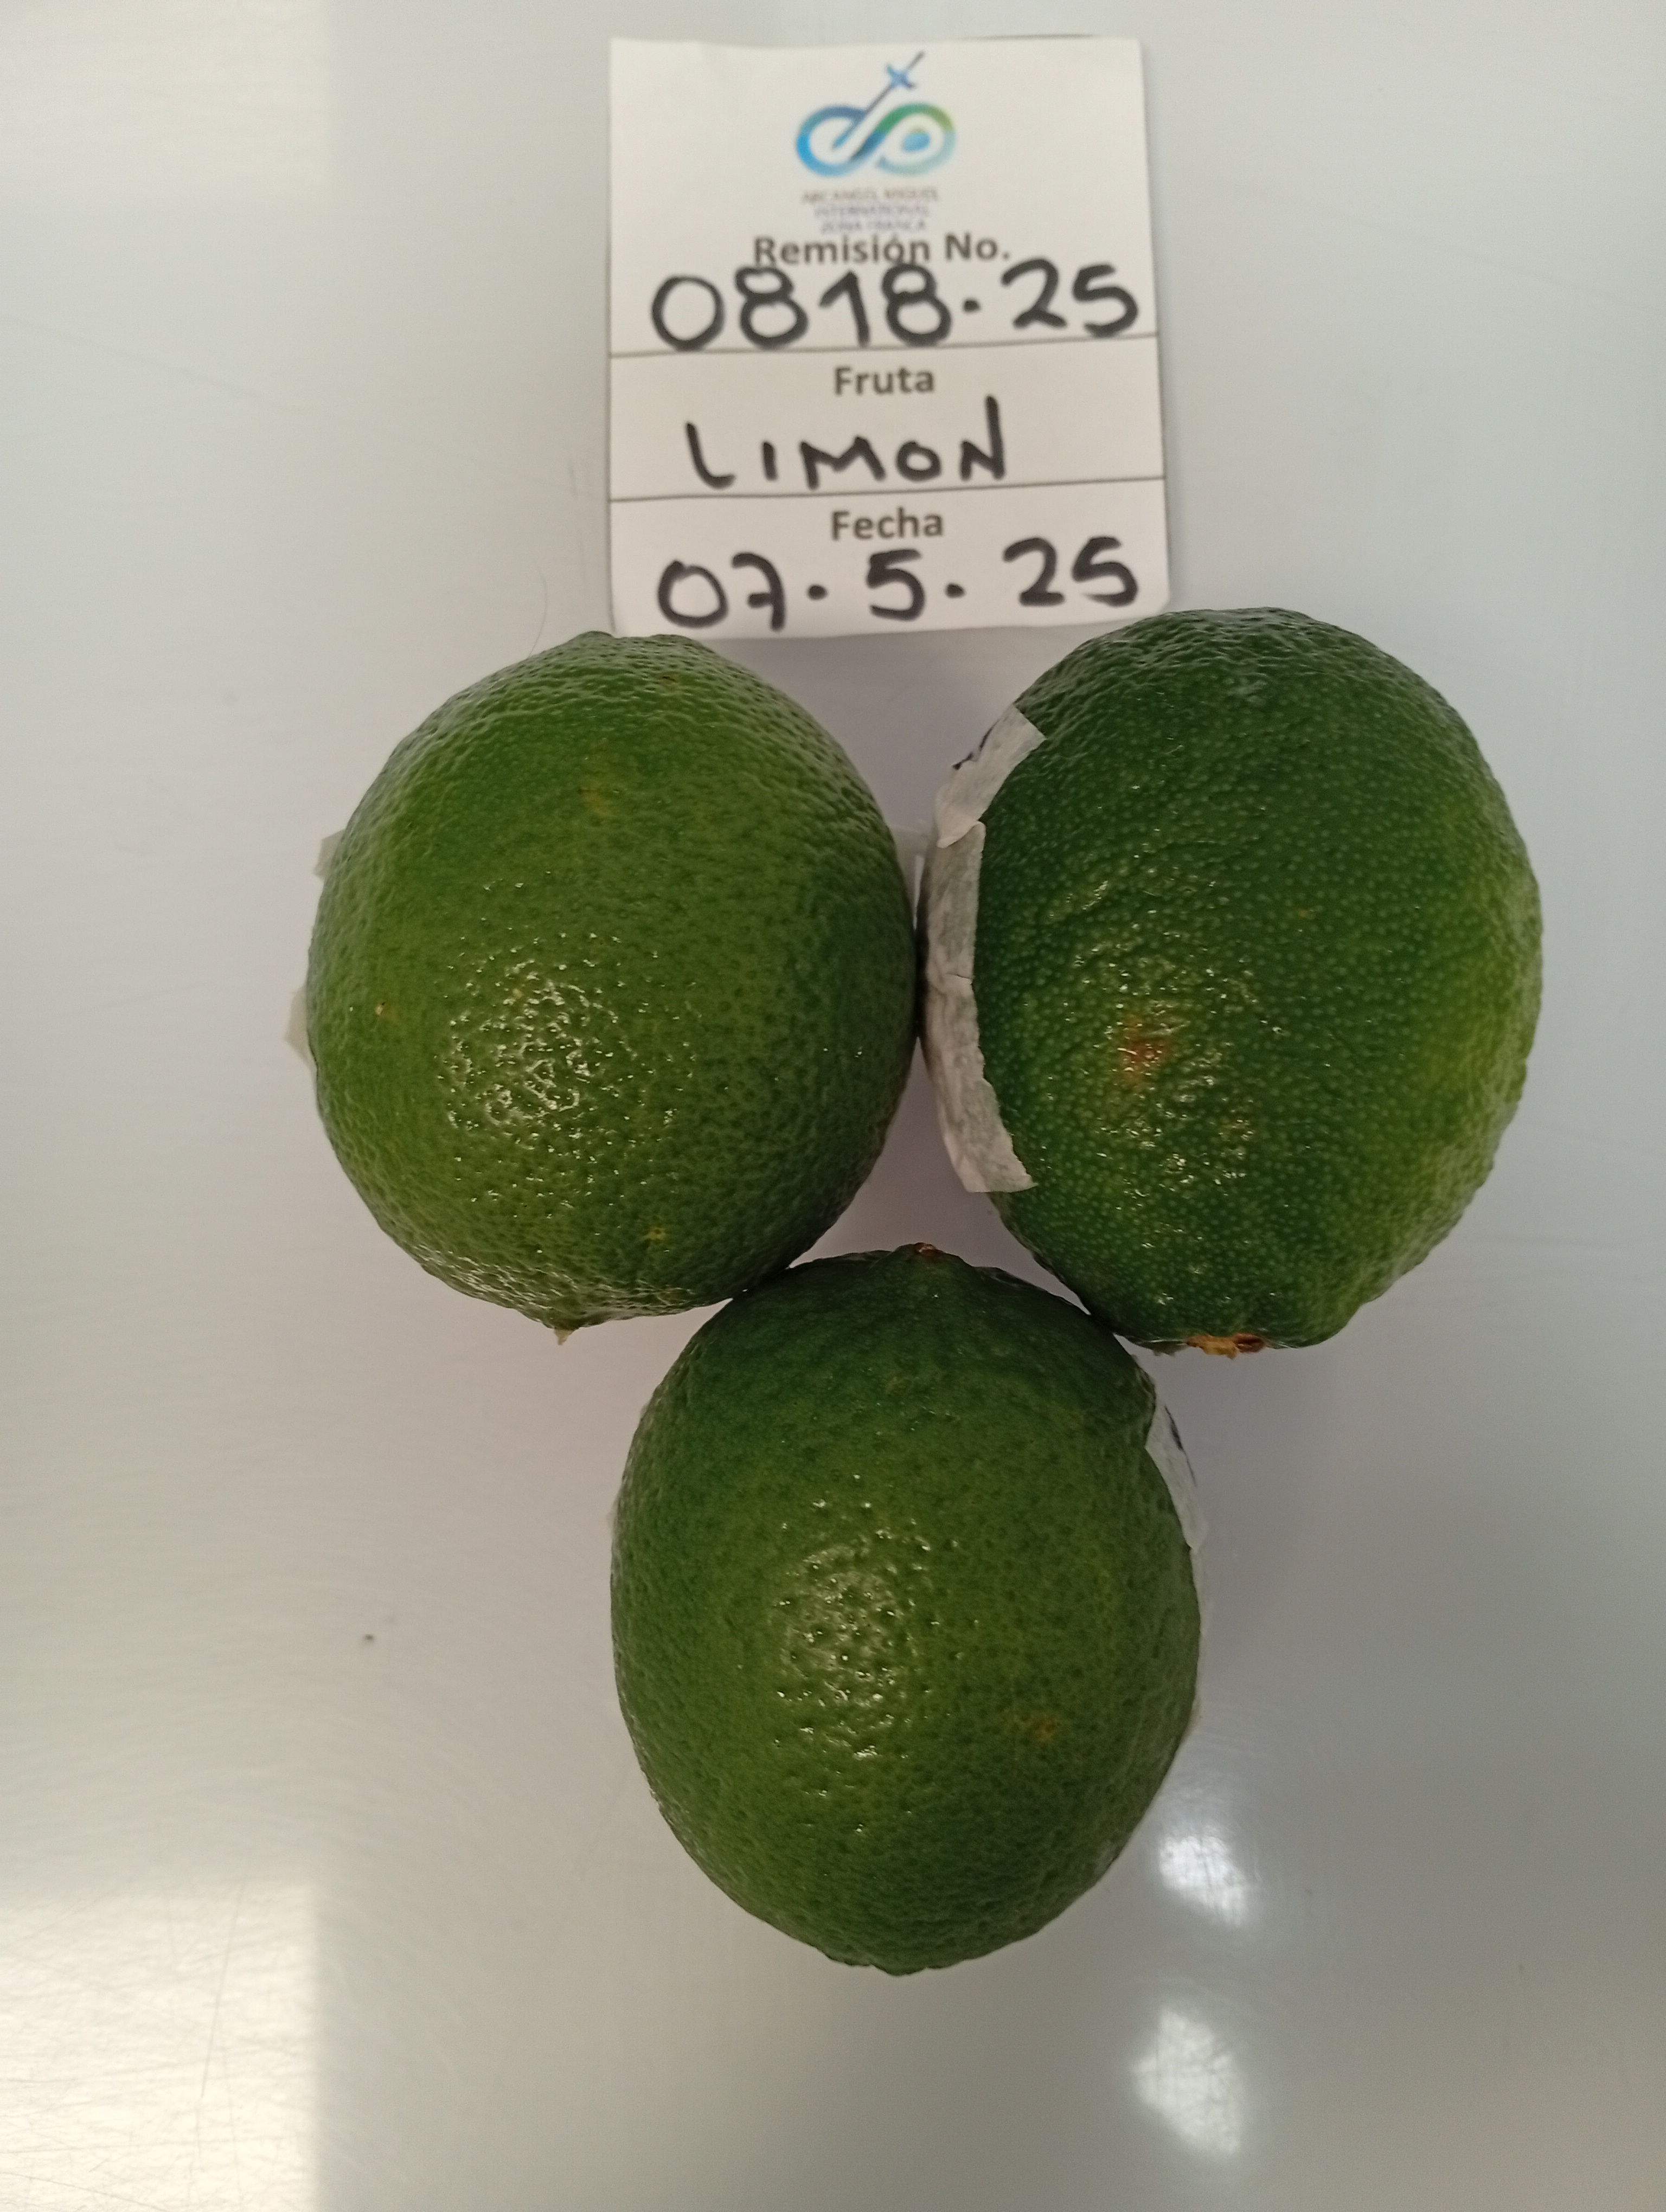 ARCANGEL MIGUEL
INTERNATIONAL
ZONA FRANCA
Remisión No.
0818.25
Fruta
LIMON
Fecha
07.5.25